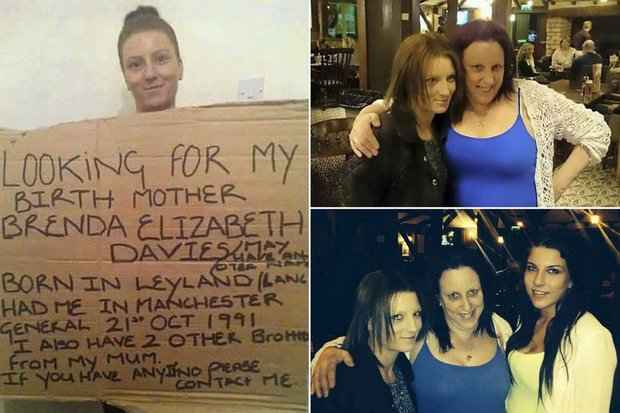 LOOKING FOR MY
BIRTH MOTHER
BRENDA ELIZABETH
DAVIES/MAY
HAVE AN
OTER
BORN IN LEYLAND/LANC
HAD ME IN MANCHESTER
GENERAL 21ST OCT 1991
I ALSO HAVE 2 OTHER
FROM MY MUM.
IF YOU HAVE ANY INO PLEASE
CONTACT ME.